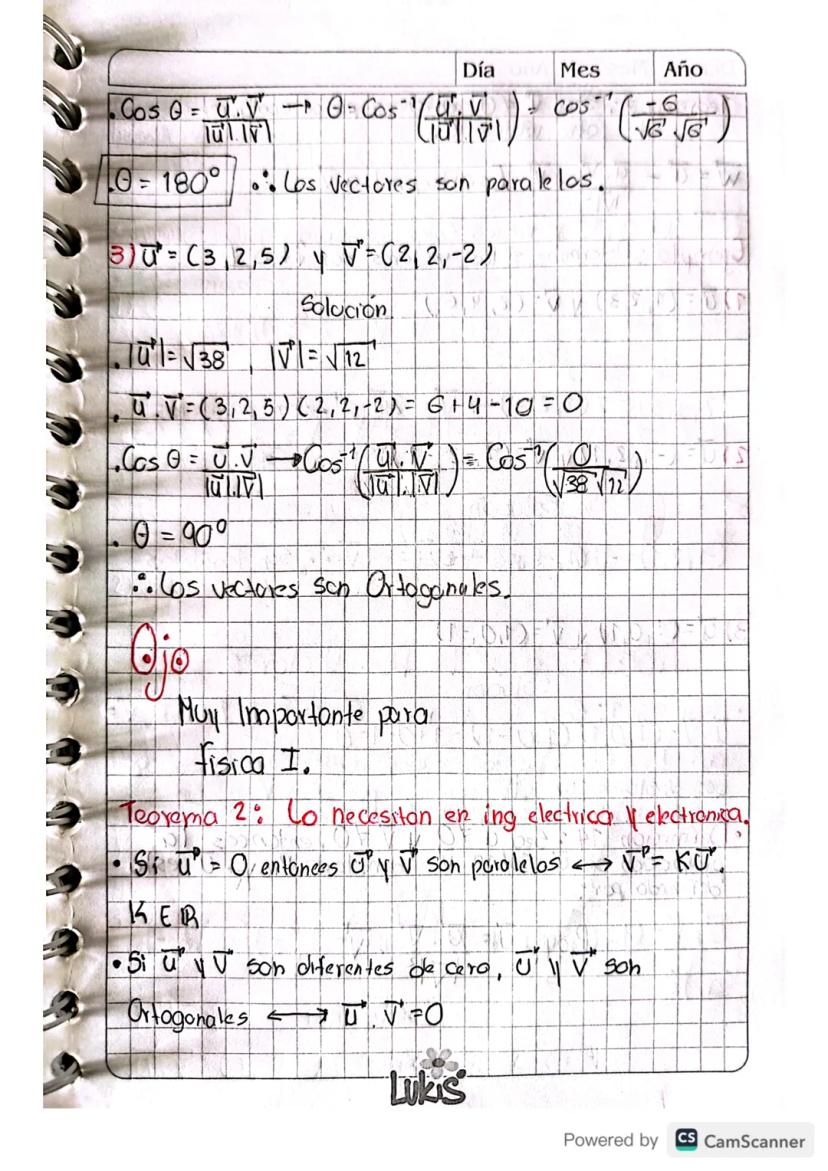 Día Mes Año
.Cos θ = u⃗.v⃗/|u⃗|.|v⃗| → θ = Cos⁻¹(u⃗.v⃗/|u⃗||v⃗|) = cos⁻¹(-6/√6 √6)
.θ = 180° ∴ Los vectores son paralelos.
3) u⃗ = (3,2,5) y v⃗ = (2,2,-2)
Solución
. |u⃗| = √38 , |v⃗| = √12
. u⃗.v⃗ = (3,2,5)(2,2,-2) = 6+4-10 = 0
.Cos θ = u⃗.v⃗/|u⃗|.|v⃗| → Cos⁻¹(u⃗.v⃗/|u⃗|.|v⃗|) = Cos⁻¹(0/√38 √12)
. θ = 90°
∴ Los vectores son Ortogonales.
Ojo
Muy Importante para
física I.
Teorema 2: Lo necesitan en ing electrica y electronica.
• Si u⃗ = 0, entonces u⃗ y v⃗ son paralelos ↔ v⃗ = Ku⃗.
K E ℝ
• Si u⃗ y v⃗ son diferentes de cero, u⃗ y v⃗ son
Ortogonales ↔ u⃗.v⃗ = 0
LUKIS
Powered by CS CamScanner